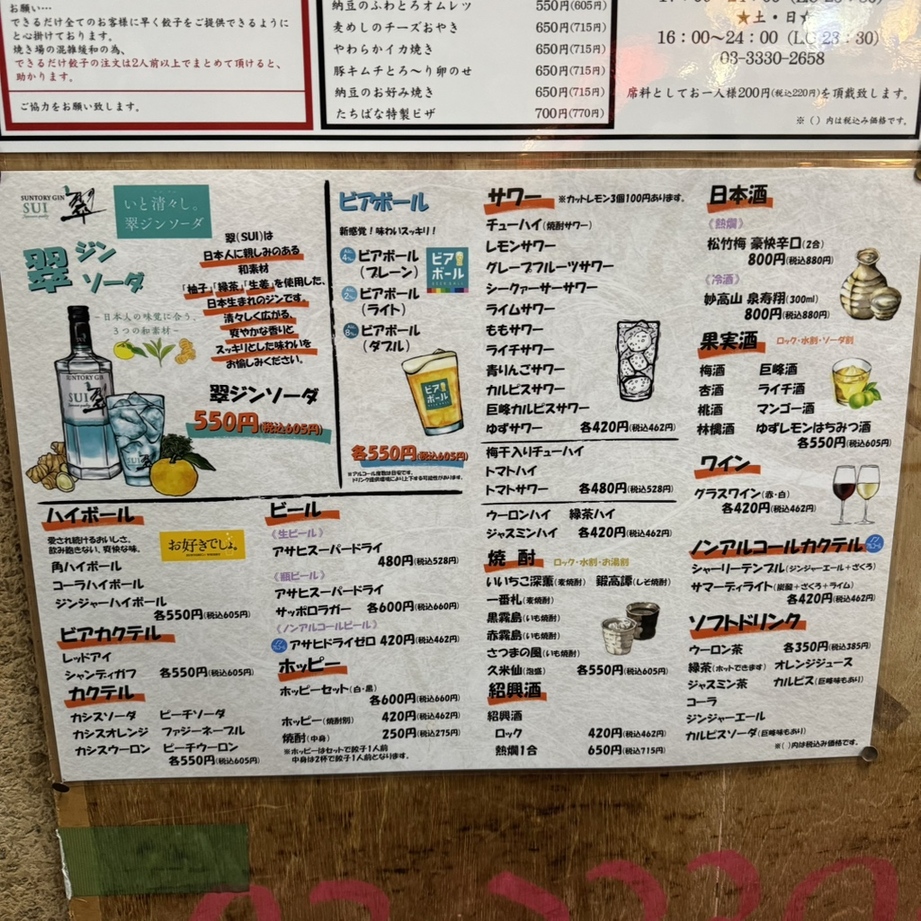 お願い…
できるだけ全てのお客様に早く餃子をご提供できるように
と心掛けております。
焼き場の混雑緩和の為、
できるだけ餃子の注文は2人前以上でまとめて頂けると、
助かります。
ご協力をお願い致します。
納豆のふわとろオムレツ 550円(605円)
麦めしのチーズおやき 650円(715円)
やわらかイカ焼き 650円(715円)
豚キムチとろ〜り卵のせ 650円(715円)
納豆のお好み焼き 650円(715円)
たちばな特製ピザ 700円(770円)
★土・日☆
16：00〜24：00(LO 23：30)
03-3330-2658
席料としてお一人様200円(税込220円)を頂戴致します。
※( )内は税込み価格です。
SUNTORY GIN
SUI
翠
いと清々し。
翠ジンソーダ
翠ジン
ソーダ
翠(SUI)は
日本人に親しみのある
和素材
「柚子」「緑茶」「生姜」を使用した、
日本生まれのジンです。
清々しく広がる、
爽やかな香りと
スッキリとした味わいを
お愉しみください。
〜日本人の味覚に合う、
3つの和素材〜
SUNTORY GIN
SUI
翠
翠ジンソーダ
550円(税込605円)
ビアボール
新感覚！味わいスッキリ！
ビアボール
(プレーン)
ビアボール
(ライト)
ビアボール
(ダブル)
ビア
ボール
ビア
ボール
各550円(税込605円)
※アルコール度数は目安です。
ドリンク提供環境により上下する可能性があります。
サワー ※カットレモン3個100円あります。
チューハイ(焼酎サワー)
レモンサワー
グレープフルーツサワー
シークァーサーサワー
ライムサワー
ももサワー
ライチサワー
青りんごサワー
カルピスサワー
巨峰カルピスサワー
ゆずサワー 各420円(税込462円)
梅干入りチューハイ
トマトハイ
トマトサワー 各480円(税込528円)
ウーロンハイ 緑茶ハイ
ジャスミンハイ 各420円(税込462円)
焼酎 ロック・水割・お湯割
いいちこ深薫(麦焼酎) 鍛高譚(しそ焼酎)
一番札(麦焼酎)
黒霧島(いも焼酎)
赤霧島(いも焼酎)
さつまの風(いも焼酎)
久米仙(泡盛) 各550円(税込605円)
紹興酒
紹興酒
ロック 420円(税込462円)
熱燗1合 650円(税込715円)
日本酒
《熱燗》
松竹梅 豪快辛口(2合)
800円(税込880円)
《冷酒》
妙高山 泉寿翔(300ml)
800円(税込880円)
果実酒 ロック・水割・ソーダ割
梅酒 巨峰酒
杏酒 ライチ酒
桃酒 マンゴー酒
林檎酒 ゆずレモンはちみつ酒
各550円(税込605円)
ワイン
グラスワイン(赤・白)
各420円(税込462円)
ノンアルコールカクテル
シャーリーテンプル(ジンジャーエール+ざくろ)
サマーディライト(炭酸+ざくろ+ライム)
各420円(税込462円)
ソフトドリンク
ウーロン茶 各350円(税込385円)
緑茶(ホットできます) オレンジジュース
ジャスミン茶 カルピス(巨峰味もあり)
コーラ
ジンジャーエール
カルピスソーダ(巨峰味もあり)
※( )内は税込み価格です。
ハイボール
愛され続けるおいしさ、
飲み飽きない、爽快な味。
お好きでしょ。
角ハイボール
コーラハイボール
ジンジャーハイボール
各550円(税込605円)
ビアカクテル
レッドアイ
シャンディガフ 各550円(税込605円)
カクテル
カシスソーダ ピーチソーダ
カシスオレンジ ファジーネーブル
カシスウーロン ピーチウーロン
各550円(税込605円)
ビール
《生ビール》
アサヒスーパードライ
480円(税込528円)
《瓶ビール》
アサヒスーパードライ
サッポロラガー 各600円(税込660円)
《ノンアルコールビール》
アサヒドライゼロ 420円(税込462円)
ホッピー
ホッピーセット(白・黒)
各600円(税込660円)
ホッピー(焼酎別) 420円(税込462円)
焼酎(中身) 250円(税込275円)
※ホッピーはセットで餃子1人前
中身は2杯で餃子1人前となります。